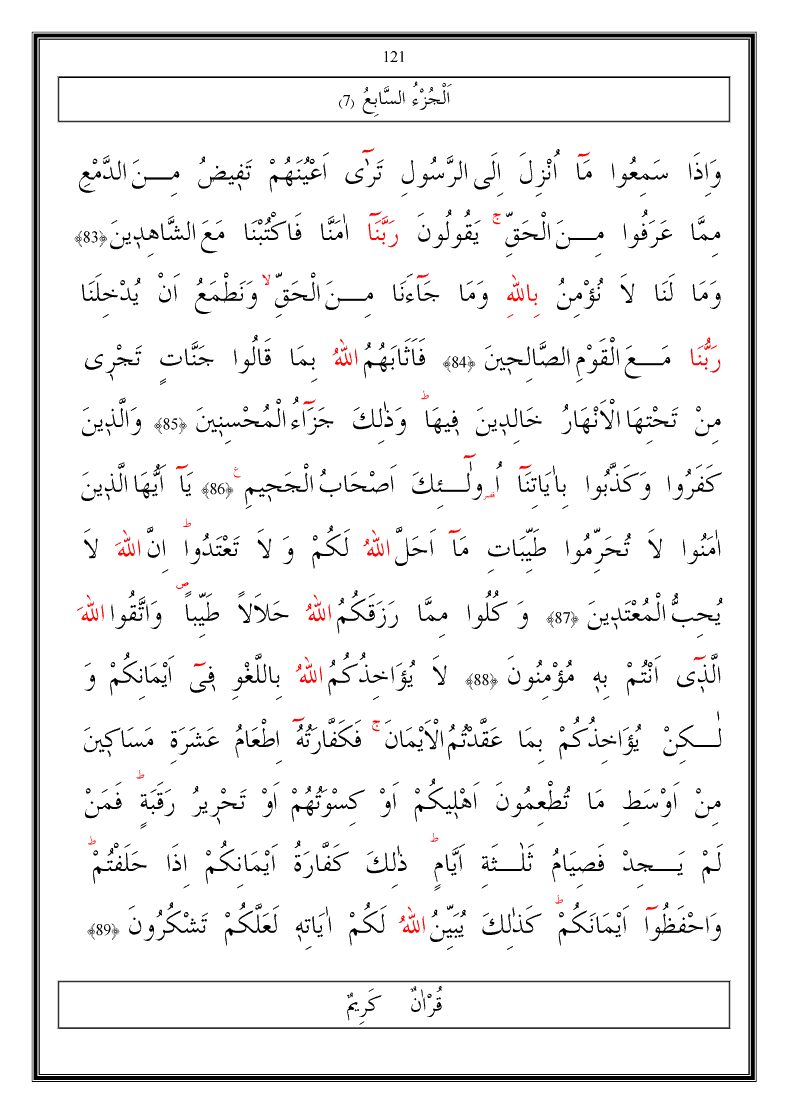 121
اَلْجُزْءُ السَّابِعُ (7)
وَاِذَا سَمِعُوا مَٓا اُنْزِلَ اِلَى الرَّسُولِ تَرٰٓى اَعْيُنَهُمْ تَفٖيضُ مِـــنَ الدَّمْعِ
مِمَّا عَرَفُوا مِـــنَ الْحَقِّۚ يَقُولُونَ رَبَّنَٓا اٰمَنَّا فَاكْتُبْنَا مَعَ الشَّاهِدٖينَ ﴿83﴾
وَمَا لَنَا لَا نُؤْمِنُ بِاللّٰهِ وَمَا جَٓاءَنَا مِـــنَ الْحَقِّۙ وَنَطْمَعُ اَنْ يُدْخِلَنَا
رَبُّنَا مَـــعَ الْقَوْمِ الصَّالِحٖينَ ﴿84﴾ فَاَثَابَهُمُ اللّٰهُ بِمَا قَالُوا جَنَّاتٍ تَجْرٖى
مِنْ تَحْتِهَا الْاَنْهَارُ خَالِدٖينَ فٖيهَاؕ وَذٰلِكَ جَزَٓاءُ الْمُحْسِنٖينَ ﴿85﴾ وَالَّذٖينَ
كَفَرُوا وَكَذَّبُوا بِاٰيَاتِنَٓا اُو۬لٰٓـــئِكَ اَصْحَابُ الْجَحٖيمِ ﴿86﴾ يَٓا اَيُّهَا الَّذٖينَ
اٰمَنُوا لَا تُحَرِّمُوا طَيِّبَاتِ مَٓا اَحَلَّ اللّٰهُ لَكُمْ وَ لَا تَعْتَدُواؕ اِنَّ اللّٰهَ لَا
يُحِبُّ الْمُعْتَدٖينَ ﴿87﴾ وَ كُلُوا مِمَّا رَزَقَكُمُ اللّٰهُ حَلَالاً طَيِّباًࣕ وَاتَّقُوا اللّٰهَ
الَّذٖٓى اَنْتُمْ بِهٖ مُؤْمِنُونَ ﴿88﴾ لَا يُؤَاخِذُكُمُ اللّٰهُ بِاللَّغْوِ فٖٓى اَيْمَانِكُمْ وَ
لٰـــكِنْ يُؤَاخِذُكُمْ بِمَا عَقَّدْتُمُ الْاَيْمَانَۚ فَكَفَّارَتُهُٓ اِطْعَامُ عَشَرَةِ مَسَاكٖينَ
مِنْ اَوْسَطِ مَا تُطْعِمُونَ اَهْلٖيكُمْ اَوْ كِسْوَتُهُمْ اَوْ تَحْرٖيرُ رَقَبَةٍؕ فَمَنْ
لَمْ يَـــجِدْ فَصِيَامُ ثَلٰـــثَةِ اَيَّامٍؕ ذٰلِكَ كَفَّارَةُ اَيْمَانِكُمْ اِذَا حَلَفْتُمْؕ
وَاحْفَظُٓوا اَيْمَانَكُمْؕ كَذٰلِكَ يُبَيِّنُ اللّٰهُ لَكُمْ اٰيَاتِهٖ لَعَلَّكُمْ تَشْكُرُونَ ﴿89﴾
قُرْاٰنٌ كَرِيمٌ